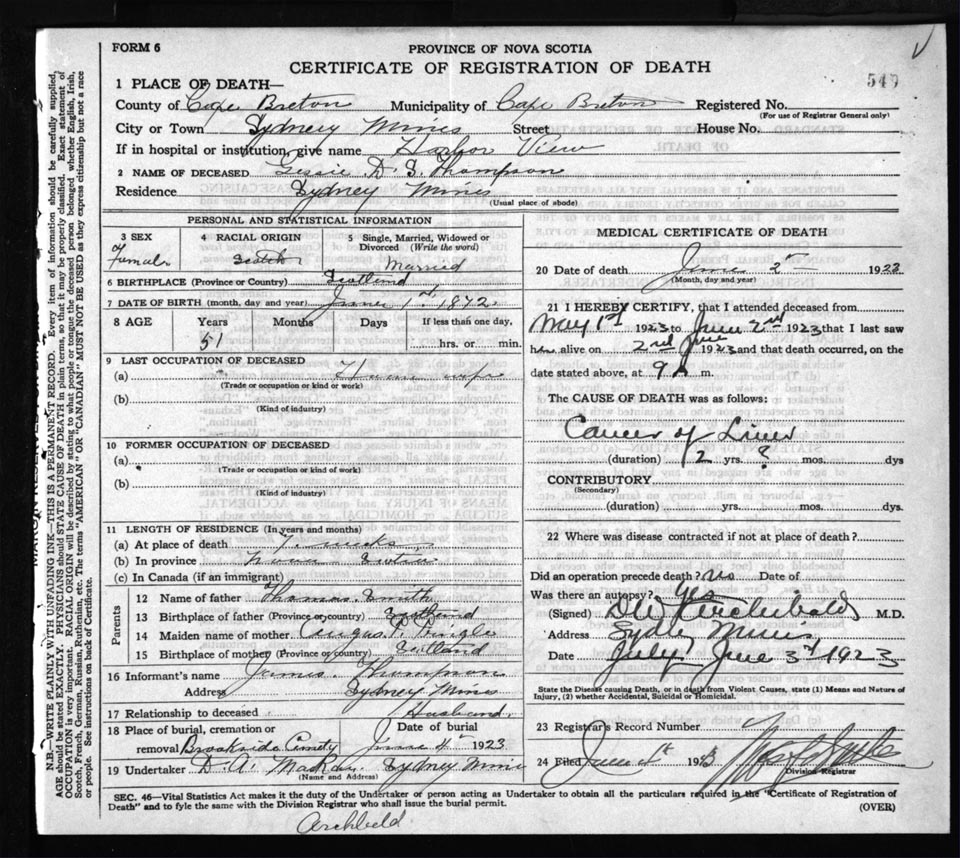 FORM 6
PROVINCE OF NOVA SCOTIA
CERTIFICATE OF REGISTRATION OF DEATH
549
1 PLACE OF DEATH—
County of Cape Breton Municipality of Cape Breton Registered No.
(For use of Registrar General only)
City or Town Sydney Mines Street House No.
If in hospital or institution, give name Harbor View
2 NAME OF DECEASED Gessie D. S. Thompson
Residence Sydney Mines
(Usual place of abode)
PERSONAL AND STATISTICAL INFORMATION
3 SEX
Female
4 RACIAL ORIGIN
Scotch
5 Single, Married, Widowed or Divorced (Write the word)
Married
6 BIRTHPLACE (Province or Country) Scotland
7 DATE OF BIRTH (month, day and year) June 1st, 1872
8 AGE Years Months Days If less than one day,
51 hrs. or min.
9 LAST OCCUPATION OF DECEASED
(a) House wife
(Trade or occupation or kind of work)
(b)
(Kind of industry)
10 FORMER OCCUPATION OF DECEASED
(a)
(Trade or occupation or kind of work)
(b)
(Kind of industry)
11 LENGTH OF RESIDENCE (In years and months)
(a) At place of death
(b) In province Nova Scotia
(c) In Canada (if an immigrant)
Parents
12 Name of father Thomas Smith
13 Birthplace of father (Province or country) Scotland
14 Maiden name of mother Pringle
15 Birthplace of mother (Province or country) Scotland
16 Informant's name James Thompson
Address Sydney Mines
17 Relationship to deceased Husband
18 Place of burial, cremation or removal Brookside Cemety
Date of burial June 4th 1923
19 Undertaker D. A. McRae Sydney Mines
(Name and Address)
MEDICAL CERTIFICATE OF DEATH
20 Date of death June 2nd 1923
(Month, day and year)
21 I HEREBY CERTIFY, that I attended deceased from
May 1st 1923 to June 2nd 1923 that I last saw
her alive on 2nd June 1923 and that death occurred, on the
date stated above, at 9 A m.
The CAUSE OF DEATH was as follows:
Cancer of Liver
(duration) 2 yrs. ? mos. dys
CONTRIBUTORY
(Secondary)
(duration) yrs. mos. dys.
22 Where was disease contracted if not at place of death?
Did an operation precede death? No Date of
Was there an autopsy? Yes
(Signed) D W Archibald M.D.
Address Sydney Mines
Date July June 3rd 1923
State the Disease causing Death, or in death from Violent Causes, state (1) Means and Nature of
Injury, (2) whether Accidental, Suicidal or Homicidal.
23 Registrar's Record Number
24 Filed June 4 1923
Division Registrar
SEC. 46—Vital Statistics Act makes it the duty of the Undertaker or person acting as Undertaker to obtain all the particulars required in the "Certificate of Registration of
Death" and to fyle the same with the Division Registrar who shall issue the burial permit.
(OVER)
Archbeld
N.B.—WRITE PLAINLY WITH UNFADING INK—THIS IS A PERMANENT RECORD. Every item of information should be carefully supplied,
AGE should be stated EXACTLY. PHYSICIANS should STATE CAUSE OF DEATH in plain terms, so that it may be properly classified. Exact statement of
OCCUPATION is very important. RACIAL ORIGIN will be described by stating to what people or tongue the deceased person belonged whether English, Irish,
Scotch, French, German, Russian, Ruthenian, etc. The terms "AMERICAN" OR "CANADIAN" MUST NOT BE USED as they express citizenship but not a race
or people. See instructions on back of Certificate.